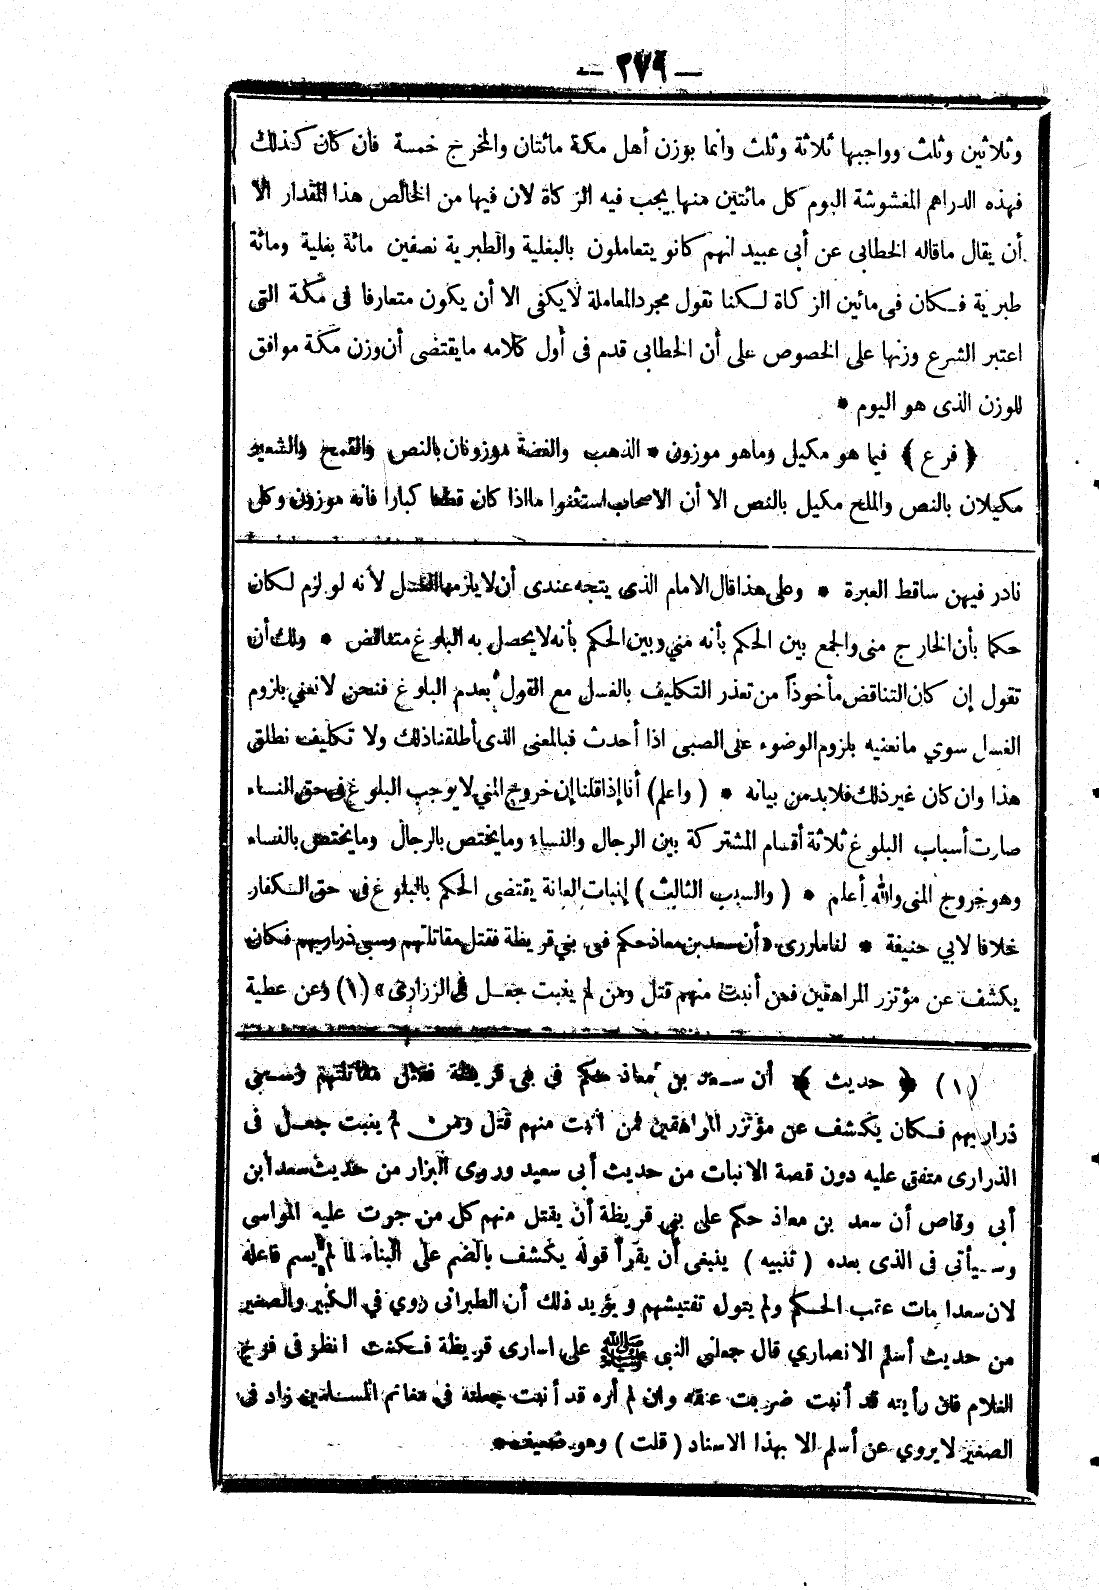 — ٢٧٩ —
وثلاثين وثلث وواجبها ثلاثة وثلث وانما بوزن أهل مكة مائتان والمخرج خمسة فان كان كذلك
فهذه الدراهم المغشوشة اليوم كل مائتين منها يجب فيه الزكاة لان فيها من الخالص هذا المقدار الا
أن يقال ماقاله الخطابى عن أبى عبيد انهم كانو يتعاملون بالبغلية والطبرية نصفين مائة بغلية ومائة
طبرية فكان فى مائين الزكاة لكنا نقول مجرد المعاملة لا يكفى الا أن يكون متعارفا فى مكة التى
اعتبر الشرع وزنها على الخصوص على أن الخطابى قدم فى أول كلامه ما يقتضى أن وزن مكة موافق
للوزن الذى هو اليوم *
﴿ فرع ﴾ فيما هو مكيل وماهو موزون * الذهب والفضة موزونان بالنص والقمح والشعير
مكيلان بالنص والملح مكيل بالنص الا أن الاصحاب استثنوا مااذا كان قطعا كبارا فانه موزون وكل
نادر فيهن ساقط العبرة * وعلى هذا قال الامام الذى يتجه عندى أن لا يلزمها الغسل لأنه لو لزم لكان
حكما بأن الخارج منى والجمع بين الحكم بأنه مني وبين الحكم بأنه لا يحصل به البلوغ متناقض * ولك أن
تقول إن كان التناقض مأخوذاً من تعذر التكليف بالغسل مع القول بعدم البلوغ فنحن لا نعني بلزوم
الغسل سوي مانعنيه بلزوم الوضوء على الصبى اذا أحدث فبالمعنى الذى أطلقنا ذلك ولا تكليف نطلق
هذا وان كان غير ذلك فلابد من بيانه * ( واعلم ) أنا إذا قلنا إن خروج المني لا يوجب البلوغ فى حق النساء
صارت أسباب البلوغ ثلاثة أقسام المشتركة بين الرجال والنساء وما يختص بالرجال وما يختص بالنساء
وهو خروج المنى والله أعلم * ( والسبب الثالث ) إنبات العانة يقتضى الحكم بالبلوغ فى حق الكفار
خلافا لابي حنيفة * لنا ماروى «أن سعد بن معاذ حكم فى بني قريظة فقتل مقاتلتهم وسبى ذراريهم فكان
يكشف عن مؤتزر المراهقين فمن أنبت منهم قتل ومن لم ينبت جعل فى الزرارى» (١) وعن عطية
(١) ﴿ حديث ﴾ أن سعد بن معاذ حكم في بنى قريظة فقتل مقاتلتهم وسبى
ذراريهم فكان يكشف عن مؤتزر المراهقين فمن أنبت منهم قتل ومن لم ينبت جعل فى
الذرارى متفق عليه دون قصة الانبات من حديث أبى سعيد وروى البزار من حديث سعد ابن
أبى وقاص أن سعد بن معاذ حكم على بنى قريظة أن يقتل منهم كل من جرت عليه المواسى
وسيأتى فى الذى بعده ( تنبيه ) ينبغى أن يقرأ قوله يكشف بالضم على البناء لما لم يسم فاعله
لان سعدا مات عقب الحكم ولم يتول تفتيشهم ويؤيد ذلك أن الطبرانى روي في الكبير والصغير
من حديث أسلم الانصاري قال جعلنى النبى ﷺ على اسارى قريظة فكنت انظر فى فرج
الغلام فان رأيته قد أنبت ضربت عنقه وان لم أره قد أنبت جعلته فى مغانم المسلمين زاد فى
الصغير لا يروي عن أسلم الا بهذا الاسناد ( قلت ) وهو ضعيف *